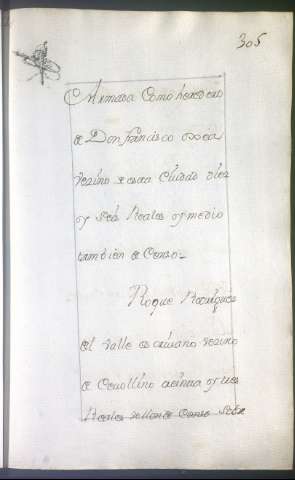 305
Armada como heredero
de Don francisco ossea
vezino de esta Ciudad diez
y seis Reales y medio
tambien de Censo
Roque Rodriguez
del valle de vezino
de treinta y tres
Reales vellon de Censo